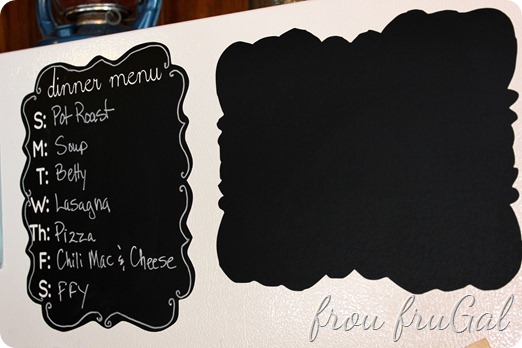 dinner menu
S: Pot Roast
M: Soup
T: Betty
W: Lasagna
Th: Pizza
F: Chili Mac & Cheese
S: FFY
frou fruGal